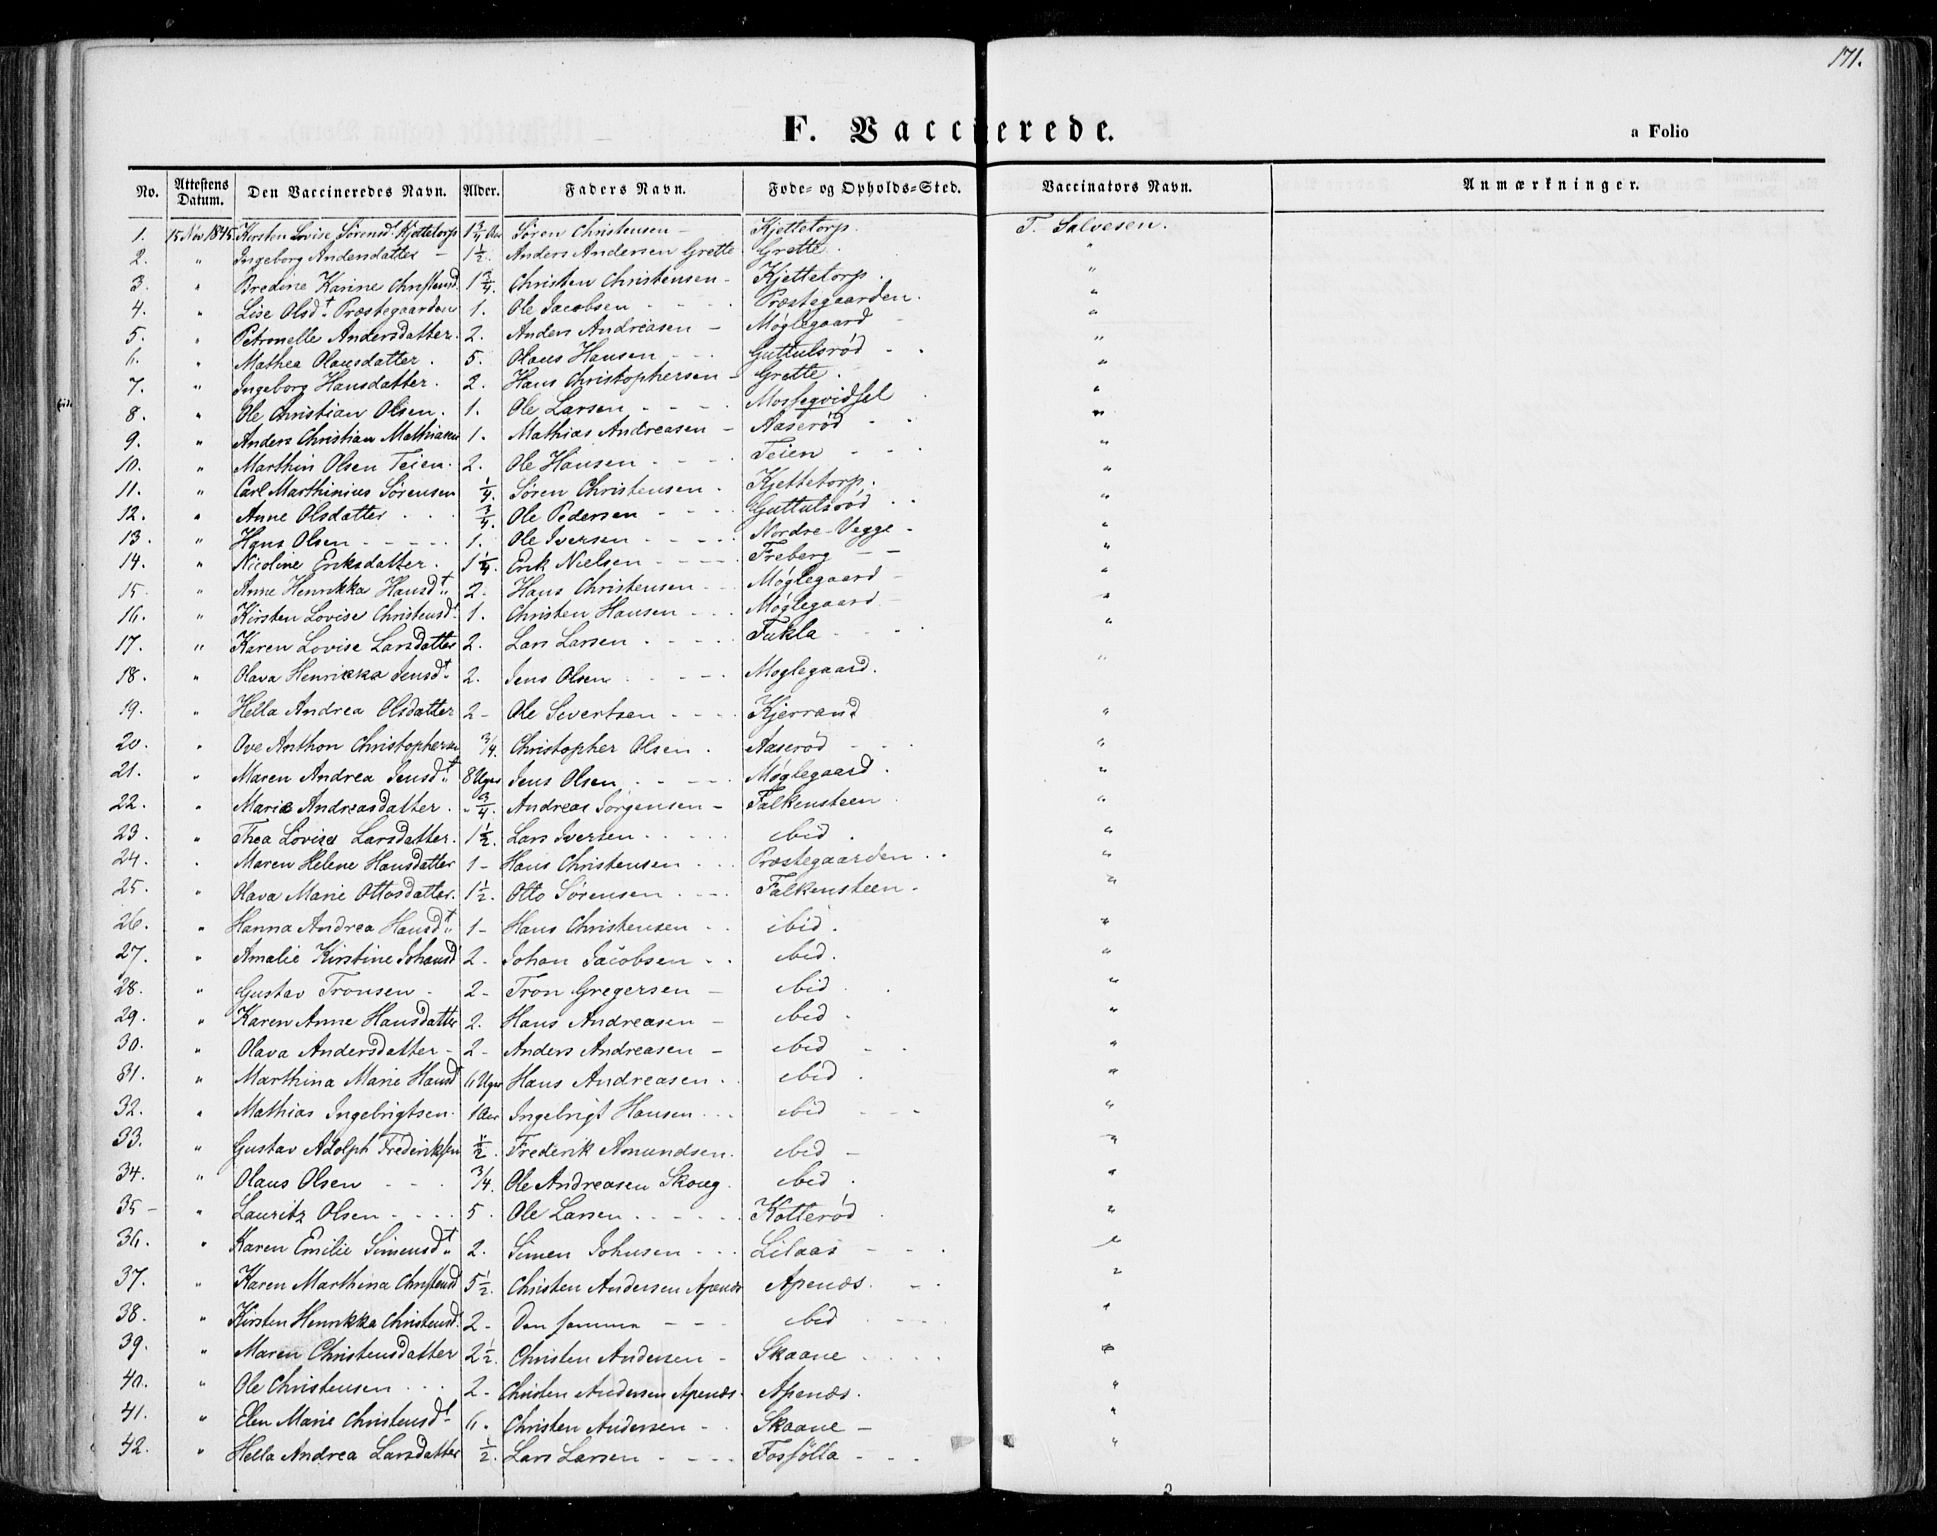 171.
F. Vaccinerede.
a Folio
No. Attestens Datum. Den Vaccineredes Navn. Alder. Faders Navn. Føde- og Opholds-Sted. Vaccinators Navn. Anmærkninger.
1. 15 Nov 1845. Kirsten Lovise Sørensd. Kjettetorp 1 3/4 Aar Søren Christensen - Kjettetorp. T. Salvesen.
2. " Ingeborg Andersdatter - 1 1/2. Anders Andersen Grette Grette. "
3. " Bredine Karine Christensd. 1 3/4. Christen Christensen - Kjettetorp. "
4. " Lise Olsdt. Præstegaarden 1. Ole Jacobsen - - Præstegaarden. "
5. " Petronelle Andersdatter. 2. Anders Andreasen - Møglegaard - "
6. " Mathea Olausdatter. 5. Olaus Hansen - - Guttulsrød - "
7. " Ingeborg Hansdatter. 2. Hans Christophersen - Grette. "
8. " Ole Christian Olsen. 1. Ole Larsen - - - "
9. " Anders Christian Mathiasen 1. Mathias Andreasen - Aaserød - "
10. " Marthin Olsen Teien. 2. Ole Hansen - - - Teien - - "
11. " Carl Marthinius Sørensen 1/4. Søren Christensen. Kjettetorp. "
12. " Anne Olsdatter - - 3/4. Ole Pedersen - - - Guttulsrød. "
13. " Hans Olsen - - - - 1. Ole Iversen - - - Nordre-Vegge - "
14. " Nicoline Eriksdatter. 1 1/4. Erik Nielsen - - - Freberg - - "
15. " Anne Henrikka Hansdt. 2. Hans Christensen - - Møglegaard - "
16. " Kirsten Lovise Christensdt. 1. Christen Hansen - - Møglegaard - "
17. " Karen Lovise Larsdatter 2. Lars Larsen - - - Fukla - - "
18. " Olava Henrikka Jensdt. 2. Jens Olsen - - - Møglegaard. "
19. " Hella Andrea Olsdatter 2 - Ole Severtsen - - - Kjerrand "
20. " Ove Anthon Christophersen 3/4. Christopher Olsen. Aaserød - "
21. " Maren Andrea Jensdt. 8 Uger Jens Olsen - - - Møglegaard. "
22. " Marie Andreasdatter. 3/4. Andreas Jørgensen - Falkensteen. "
23. " Thea Lovise Larsdatter. 1 1/2. Lars Iversen - - - ibid. "
24. " Maren Helene Hansdatter 1 - Hans Christensen - - Præstegaarden - - "
25. " Olava Marie Ottosdatter. 1 1/2. Otto Sørensen - - - Falkensteen - "
26. " Hanna Andrea Hansdt. 1 - Hans Christensen - - ibid. "
27. " Amalie Kirstine Johansd 2 - Johan Jacobsen - - ibid. "
28. " Gustav Tronsen - 2 - Tron Gregersen - ibid. "
29. " Karen Anne Hansdatter 2. Hans Andreasen - ibid. "
30. " Olava Andersdatter - 2 - Anders Andreasen - ibid - - "
31. " Marthina Marie Hansd 6 Uger Hans Andreasen. ibid. "
32. " Mathias Ingebrigtsen. 1 Aar Ingebrigt Hansen - - ibid - - - "
33. " Gustav Adolph Frederiksen 1/2. Frederik Amundsen. ibid - "
34. " Olaus Olsen - - - 3/4. Ole Andreasen Skoug. ibid. "
35 - " Lauritz Olsen - - - 5. Ole Larsen - - - - Kotterød. "
36. " Karen Emilie Simensdt. 2. Simen Johnsen - - Lilaas - - - "
37. " Karen Marthina Christensd 5 1/2. Christen Andersen Apenæs Apenæs. - - "
38. " Kirsten Henrikka Christensd. 2 - Den samme - - - ibid - - - "
39. " Maren Christensdatter 2 1/2. Christen Andersen - Skaane - - - "
40. " Ole Christensen - - - 2 - Christen Andersen Apenæs. Apenæs. "
41. " Elen Marie Christensdt. 6. Christen Andersen - - Skaane - "
42. " Hella Andrea Larsdatter 1/2. Lars Larsen - - - "